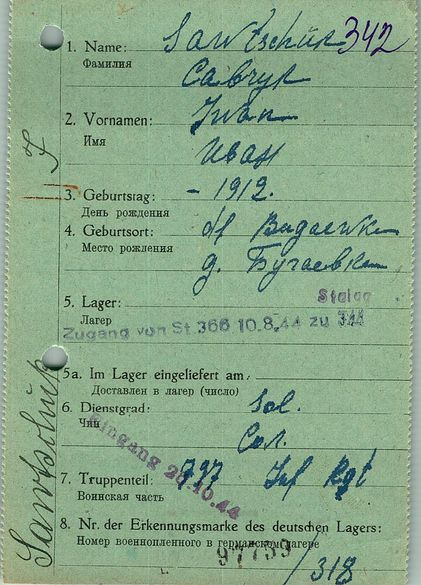 1. Name: Sawtschük 342
Фамилия Савчук
2. Vornamen: Iwan
Имя Иван
3. Geburtstag: - 1912.
День рождения
4. Geburtsort: df Bugaewka
Место рождения д. Бугаевка
5. Lager: Stalag
Лагерь
Zugang von St. 366 10.8.44 zu 344
5a. Im Lager eingeliefert am:
Доставлен в лагерь (число)
6. Dienstgrad: Sol.
Чин Сол.
Eingang 20.10.44
7. Truppenteil: 797 Inf Rgt
Воинская часть
8. Nr. der Erkennungsmarke des deutschen Lagers:
Номер военнопленного в германском лагере
97739
/318
Sawtschük